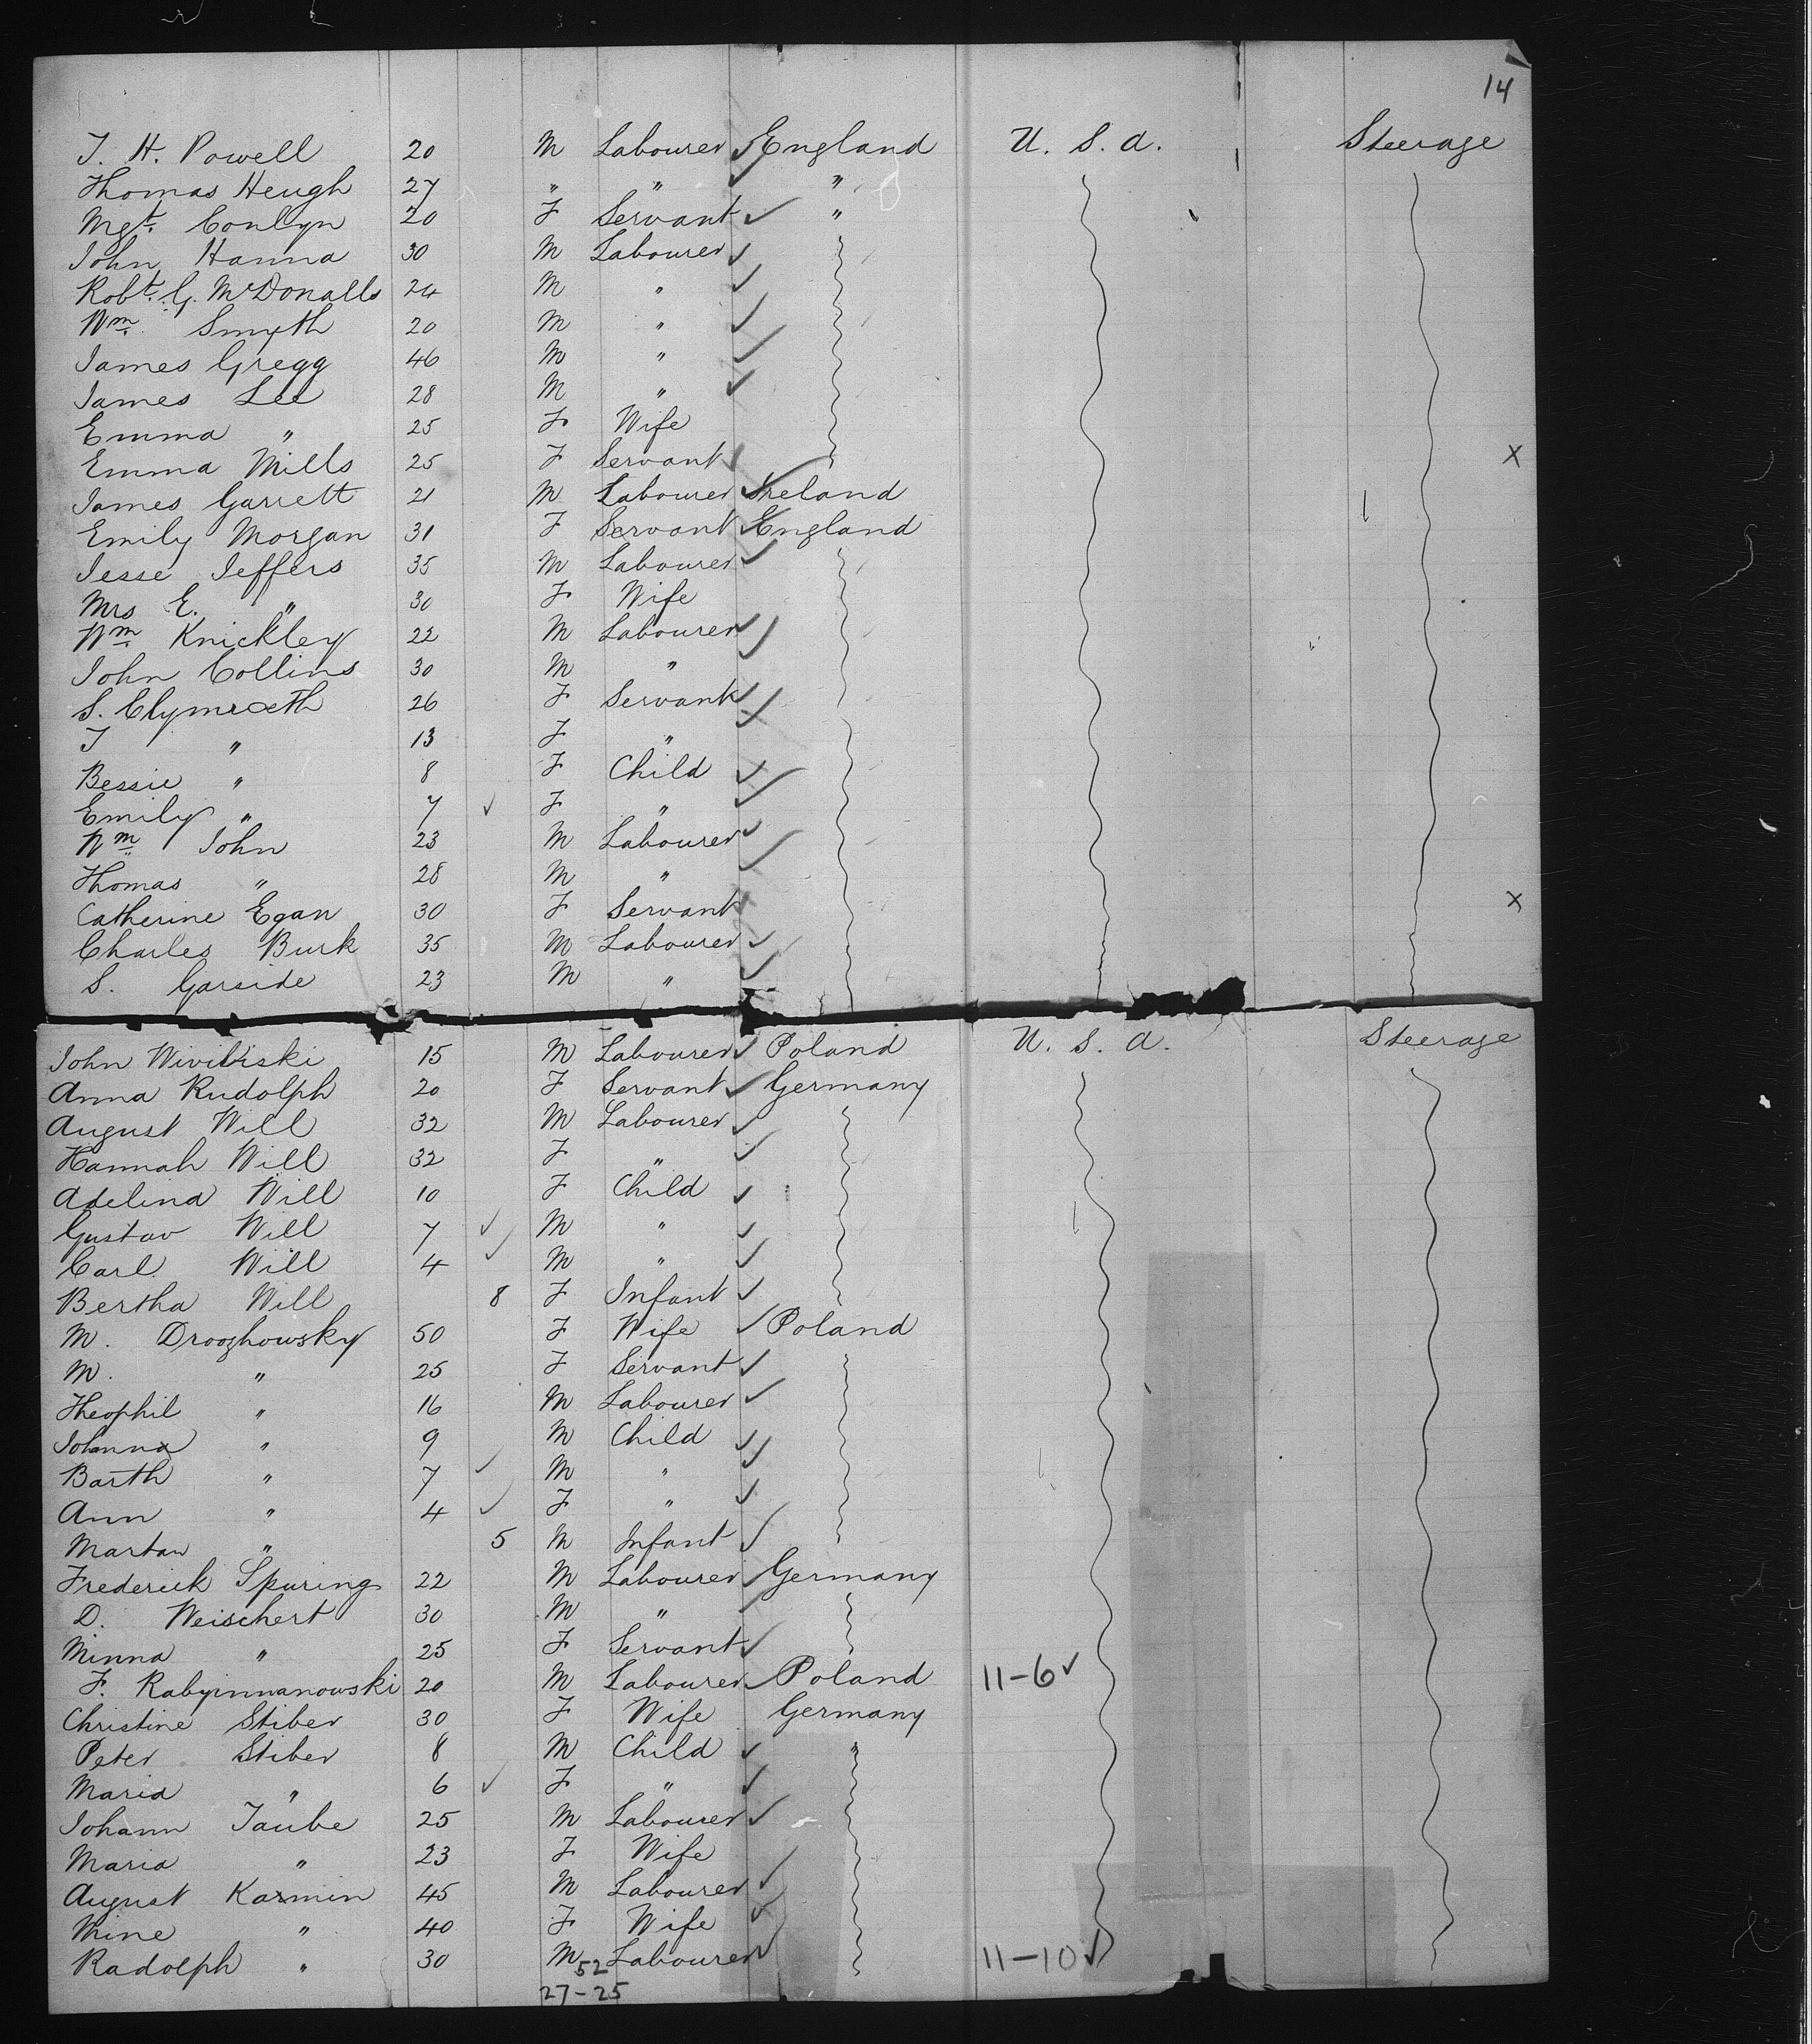 14
T. H. Powell 20 M Labourer England U. S. A. Steerage
Thomas Heugh 27 " " "
Mgt. Conlyn 20 F Servant "
John Hanna 30 M Labourer
Robt. G. McDonalls 24 M "
Wm. Smyth 20 M "
James Gregg 46 M "
James Lee 28 M "
Emma " 25 F Wife
Emma Mills 25 F Servant X
James Garrett 21 M Labourer Ireland
Emily Morgan 31 F Servant England
Jesse Jeffers 35 M Labourer
Mrs E. " 30 F Wife
Wm Knickley 22 M Labourer
John Collins 30 M "
S. Clymroeth 26 F Servant
T " 13 F "
Bessie " 8 F Child
Emily " 7 ✓ F "
Wm John 23 M Labourer
Thomas " 28 M "
Catherine Egan 30 F Servant X
Charles Burk 35 M Labourer
S. Garside 23 M "
John 15 M Labourer Poland U. S. A. Steerage
Anna Rudolph 20 F Servant Germany
August Will 32 M Labourer
Hannah Will 32 F "
Adelina Will 10 F Child
Gustav Will 7 ✓ M "
Carl Will 4 ✓ M "
Bertha Will 8 F Infant
M. Drooghowsky 50 F Wife Poland
M. " 25 F Servant
Theophil " 16 M Labourer
Johanna " 9 M Child
Barth " 7 ✓ M "
Ann " 4 ✓ F "
Martan " 5 M Infant
Frederick Spuring 22 M Labourer Germany
D. Weischert 30 M "
Minna " 25 F Servant
F. Rabyinnanowski 20 M Labourer Poland 11-6 ✓
Christine Stiber 30 F Wife Germany
Peter Stiber 8 M Child "
Maria " 6 ✓ F "
Johann Taube 25 M Labourer
Maria " 23 F Wife
August Karmin 45 M Labourer
Mine " 40 F Wife
Radolph " 30 M Labourer 11-10 ✓
52
27-25